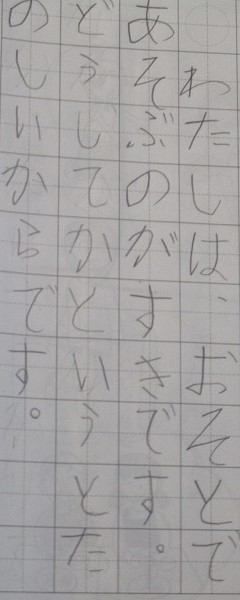 わたしは、おそとで
あそぶのがすきです。
どうしてかというとた
のしいからです。